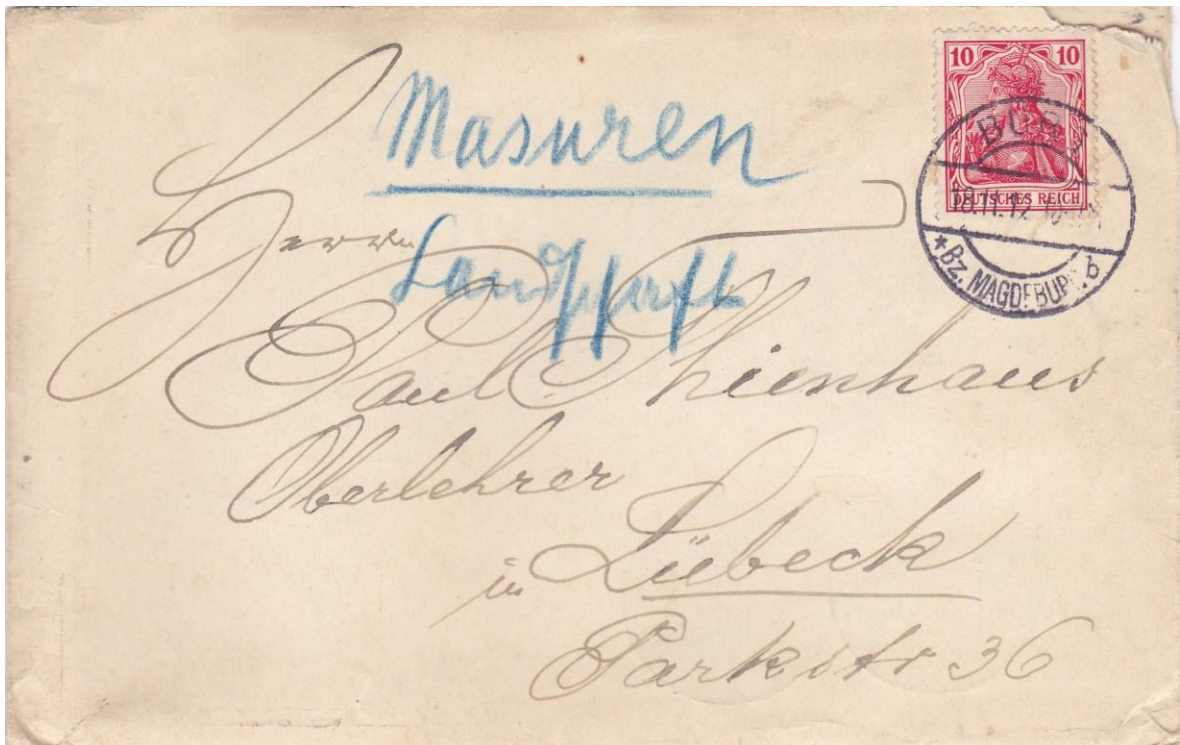 10 10
DEUTSCHES REICH
BURG
*Bz. MAGDEBURG b
Masuren
Landschaft
Herrn
Paul Thienhaus
Oberlehrer
in Lübeck
Parkstr 36